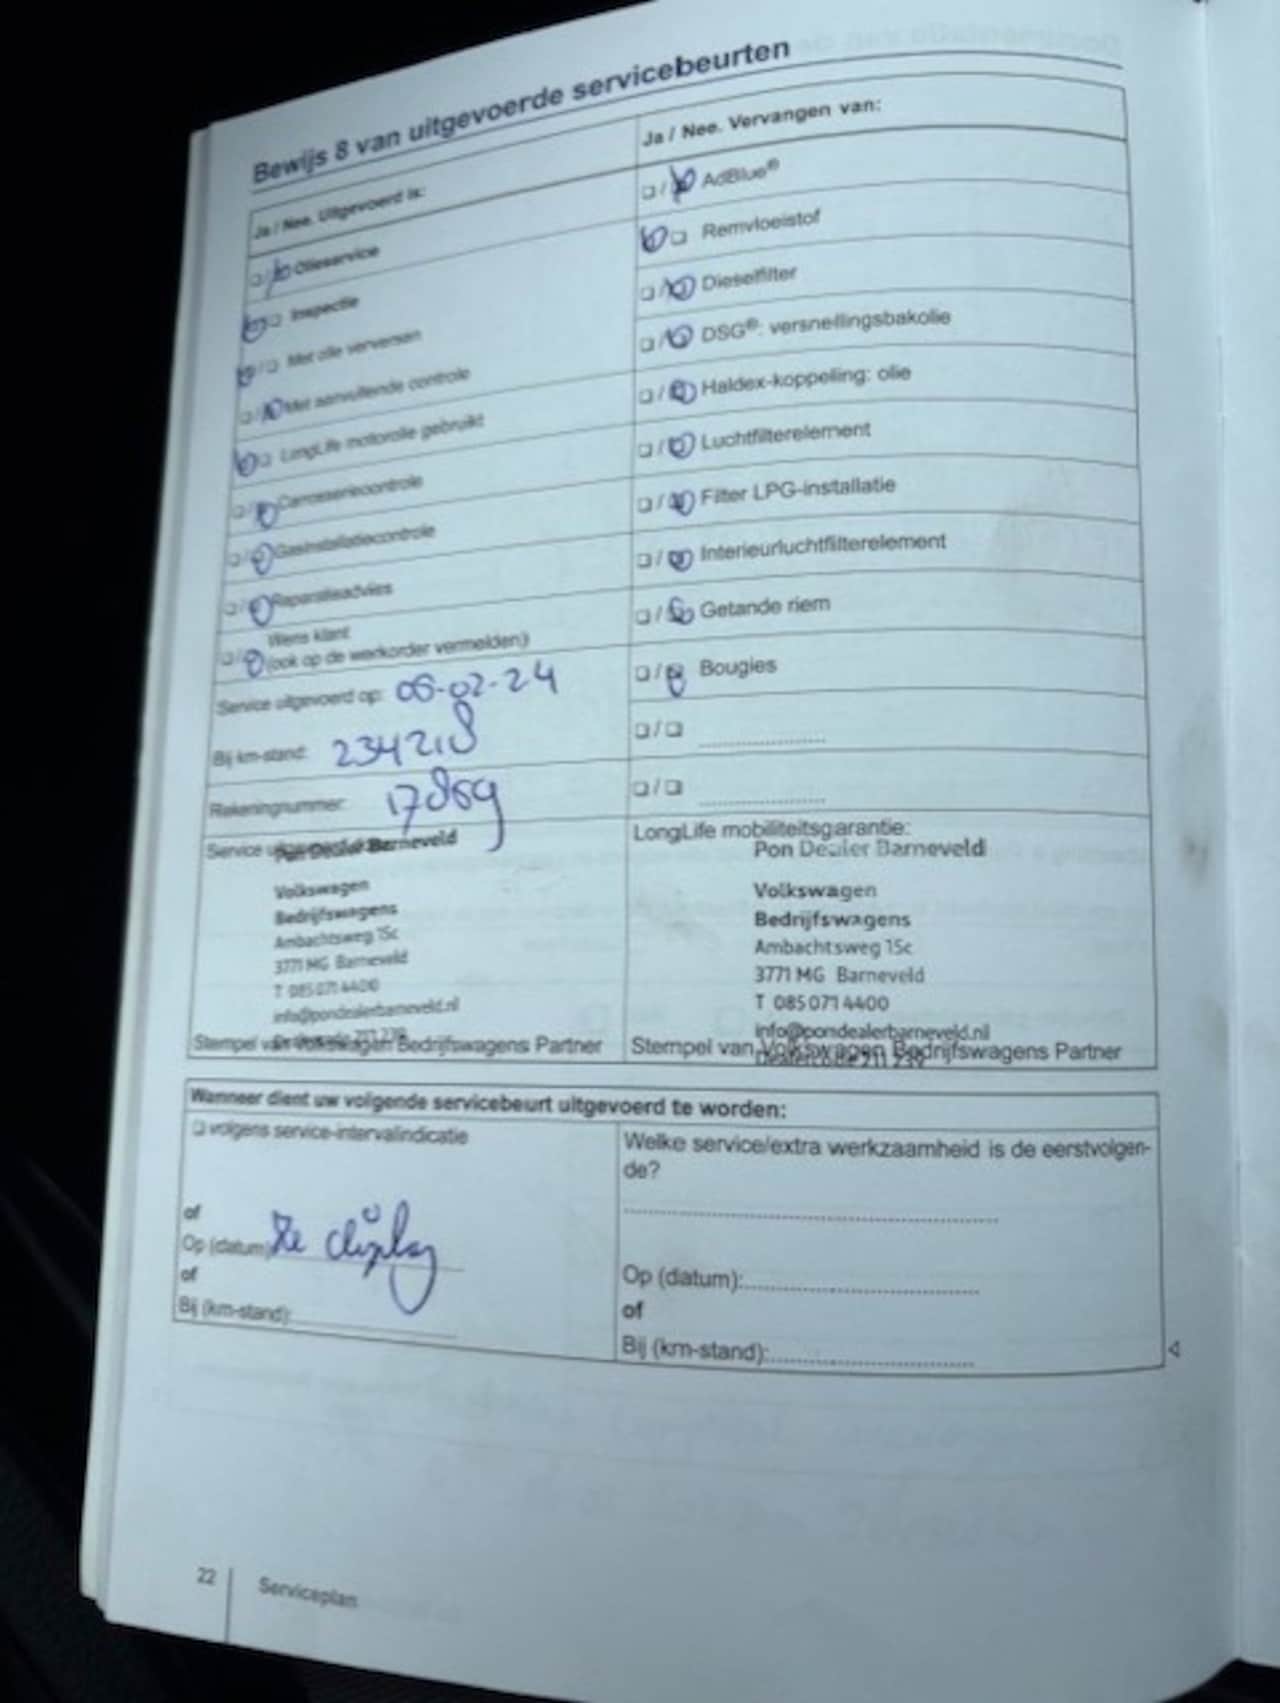 Bewijs 8 van uitgevoerde servicebeurten
Ja / Nee. Uitgevoerd is:
Olieservice
Inspectie
Met olie verversen
Met aanvullende controle
LongLife motorolie gebruikt
Carrosseriecontrole
Gasinstallatiecontrole
Reparatieadvies
Wens klant
(ook op de werkorder vermelden)
Service uitgevoerd op: 06-02-24
Bij km-stand: 234218
Rekeningnummer: 17869
Service
Pon Dealer Barneveld
Volkswagen
Bedrijfswagens
Ambachtsweg 15c
3771 MG Barneveld
T 085 071 4400
info@pondealerbarneveld.nl
Stempel van Volkswagen Bedrijfswagens Partner
Ja / Nee. Vervangen van:
AdBlue®
Remvloeistof
Dieselfilter
DSG®: versnellingsbakolie
Haldex-koppeling: olie
Luchtfilterelement
Filter LPG-installatie
Interieurluchtfilterelement
Getande riem
Bougies
LongLife mobiliteitsgarantie:
Pon Dealer Barneveld
Volkswagen
Bedrijfswagens
Ambachtsweg 15c
3771 MG Barneveld
T 085 071 4400
info@pondealerbarneveld.nl
Dealercode 211 239
Stempel van Volkswagen Bedrijfswagens Partner
Wanneer dient uw volgende servicebeurt uitgevoerd te worden:
volgens service-intervalindicatie
of
Op (datum): Zie display
of
Bij (km-stand):
Welke service/extra werkzaamheid is de eerstvolgen-
de?
Op (datum):
of
Bij (km-stand):
22
Serviceplan